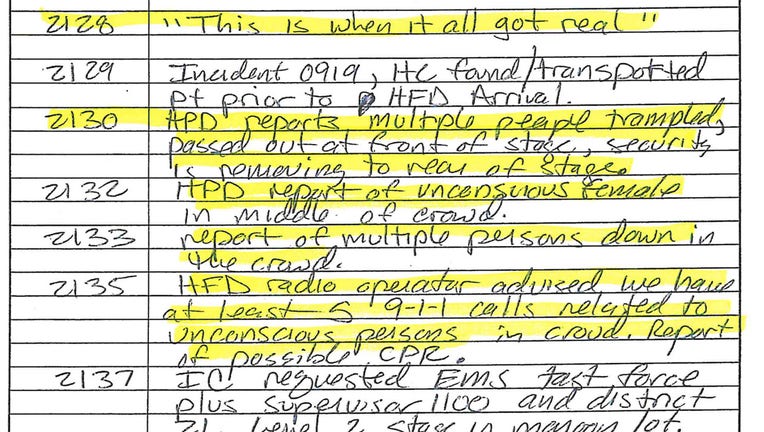 2128 "This is when it all got real"
2129 Incident 0919, HC found/transported
pt prior to HFD Arrival.
2130 HPD reports multiple people trampled,
passed out at front of stage, security
is removing to rear of stage.
2132 HPD report of unconscious female
in middle of crowd.
2133 report of multiple persons down in
the crowd.
2135 HFD radio operator advised we have
at least 5 9-1-1 calls related to
unconscious persons in croud. Report
of possible CPR.
2137 IC requested EMS task force
plus supervisor 1100 and district
21. Level 2 stage in lot.